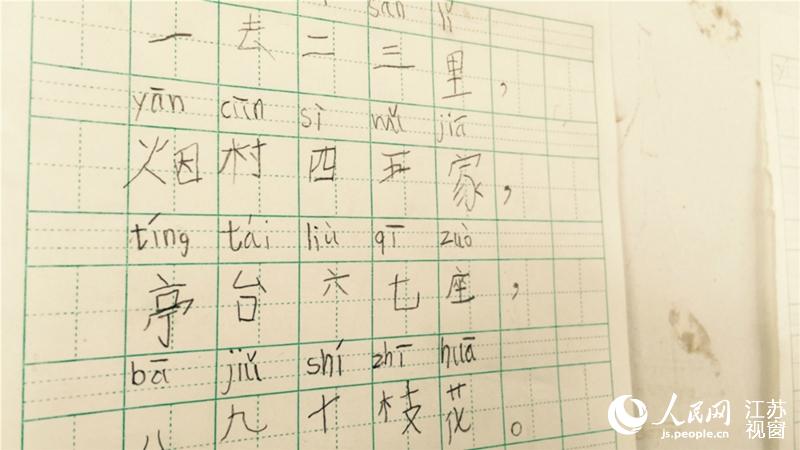 sān lǐ
一去二三里，
yān cūn sì wǔ jiā
烟村四五家，
tíng tái liù qī zuò
亭台六七座，
bā jiǔ shí zhī huā
八九十枝花。
人民网 江苏视窗
js.people.cn